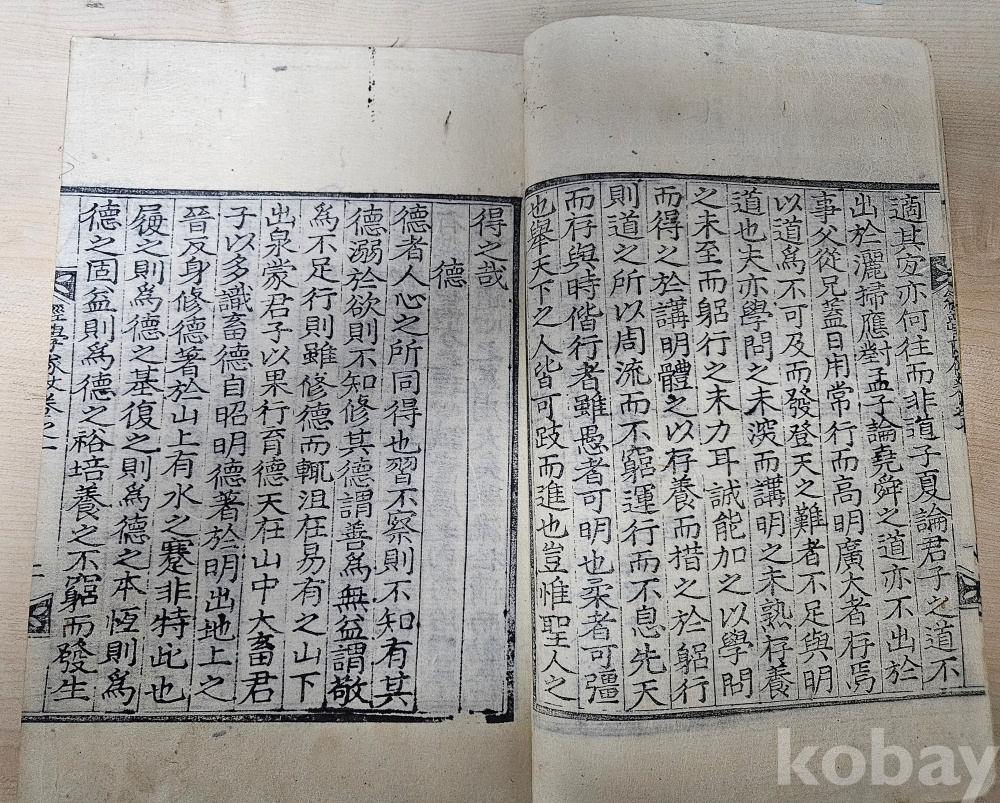 適其宐亦何往而非道子夏論君子之道不
出於灑掃應對孟子論堯舜之道亦不出於
事父從兄蓋日用常行而高明廣大者存焉
以道爲不可及而發登天之難者不足與明
道也夫亦學問之未深而講明之未熟存養
之未至而躬行之未力耳誠能加之以學問
而得之於講明體之以存養而措之於躬行
則道之所以周流而不窮運行而不息先天
而存與時偕行者雖愚者可明也柔者可彊
也舉天下之人皆可跂而進也豈惟聖人之
得之哉
德
德者人心之所同得也習不察則不知有其
德溺於欲則不知修其德謂善爲無益謂敬
爲不足行則雖修德而輒沮在易有之山下
出泉蒙君子以果行育德天在山中大畜君
子以多識畜德自昭明德著於明出地上之
晉反身修德著於山上有水之蹇非特此也
履之則爲德之基復之則爲德之本恆則爲
德之固益則爲德之裕培養之不窮而發生
卷之一
二
kobay